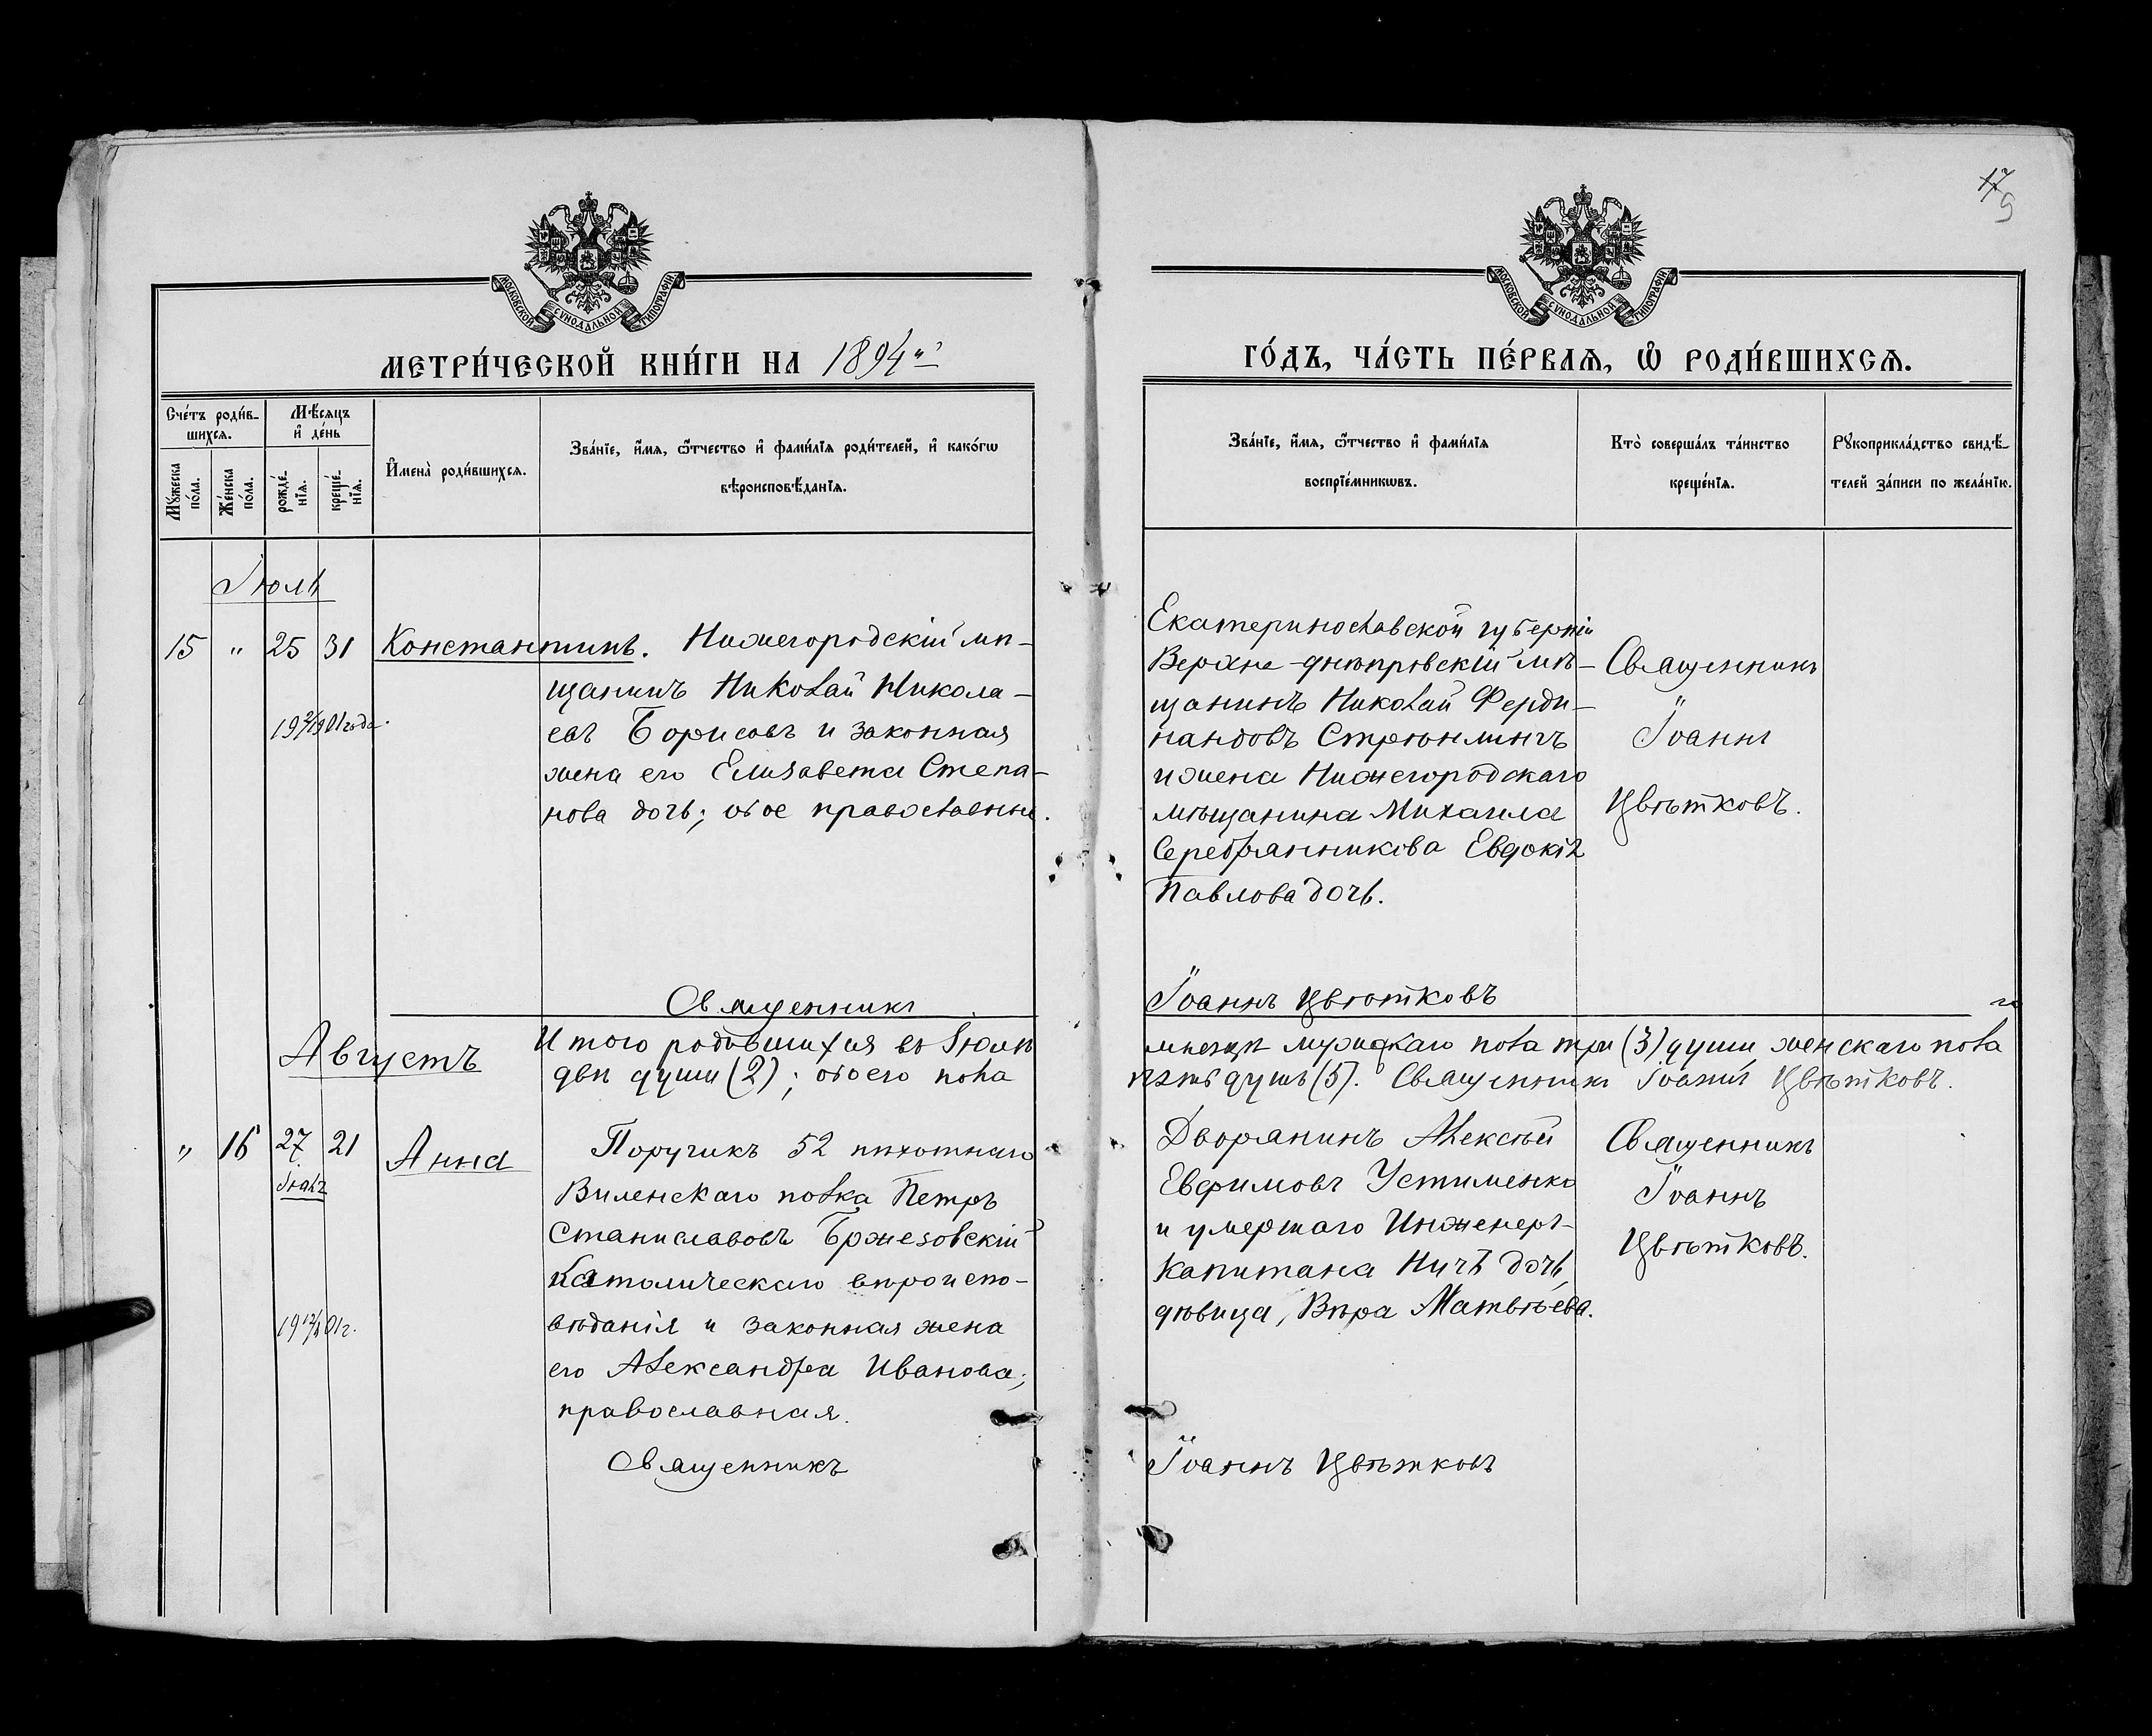 17
9
МОСКОВСКОЙ СѴНОДАЛЬНОЙ ТИПОГРАФІИ
МОСКОВСКОЙ СѴНОДАЛЬНОЙ ТИПОГРАФІИ
МЕТРИ́ЧЕСКОЙ КНИ́ГИ НА 1894й
ГО́ДЪ, ЧА́СТЬ ПЕ́РВАѦ, Ѡ҆ РОДИ́ВШИХСѦ.
Сче́тъ роди́в-
шихсѧ.
Мѣ́сѧцъ
и҆ де́нь
Мꙋ́жеска по́ла.
Же́нска по́ла.
рожде́-
нїѧ.
креще́-
нїѧ.
И҆мена̀ роди́вшихсѧ.
Зва́нїе, и҆́мѧ, ѻ҆́тчество и҆ фами́лїѧ роди́телей, и҆ како́гѡ
вѣроисповѣ́данїѧ.
Зва́нїе, и҆́мѧ, ѻ҆́тчество и҆ фами́лїѧ
воспрїе́мникѡвъ.
Кто̀ соверша́лъ та́инство
креще́нїѧ.
Рꙋкоприкла́дство свидѣ́-
телей за́писи по жела́нїю.
Іюль
15 " 25 31 Константинъ. Нижегородскій мѣ-
щанинъ Николай Никола-
евъ Борисовъ и законная
жена его Елизавета Степа-
нова дочь; обое православные.
1901 года.
Екатеринославской губерніи
Верхне-днѣпровскій мѣ-
щанинъ Николай Ферди-
нандовъ
и жена Нижегородскаго
мѣщанина Михаила
Серебрянникова Евдокія
Павлова дочь.
Священникъ
Іоаннъ
Цвѣтковъ.
Священникъ Іоаннъ Цвѣтковъ
Августъ
Итого родившихся въ Іюлѣ мѣсяцѣ мужскаго пола три (3) души, женскаго пола
двѣ души (2); обоего пола пять душъ (5). Священникъ Іоаннъ Цвѣтковъ.
" 16 27 21 Анна
Іюля
Поручикъ 52 пѣхотнаго
Виленскаго полка Петръ
Станиславовъ Бржезовскій
католическаго вѣроиспо-
вѣданія и законная жена
его Александра Иванова;
православная.
1901 г.
Дворянинъ Алексѣй
Евфимовъ Устименко
и умершаго Инженеръ-
Капитана Ничъ дочь,
дѣвица, Вѣра Матвѣева.
Священникъ
Іоаннъ
Цвѣтковъ.
Священникъ Іоаннъ Цвѣтковъ